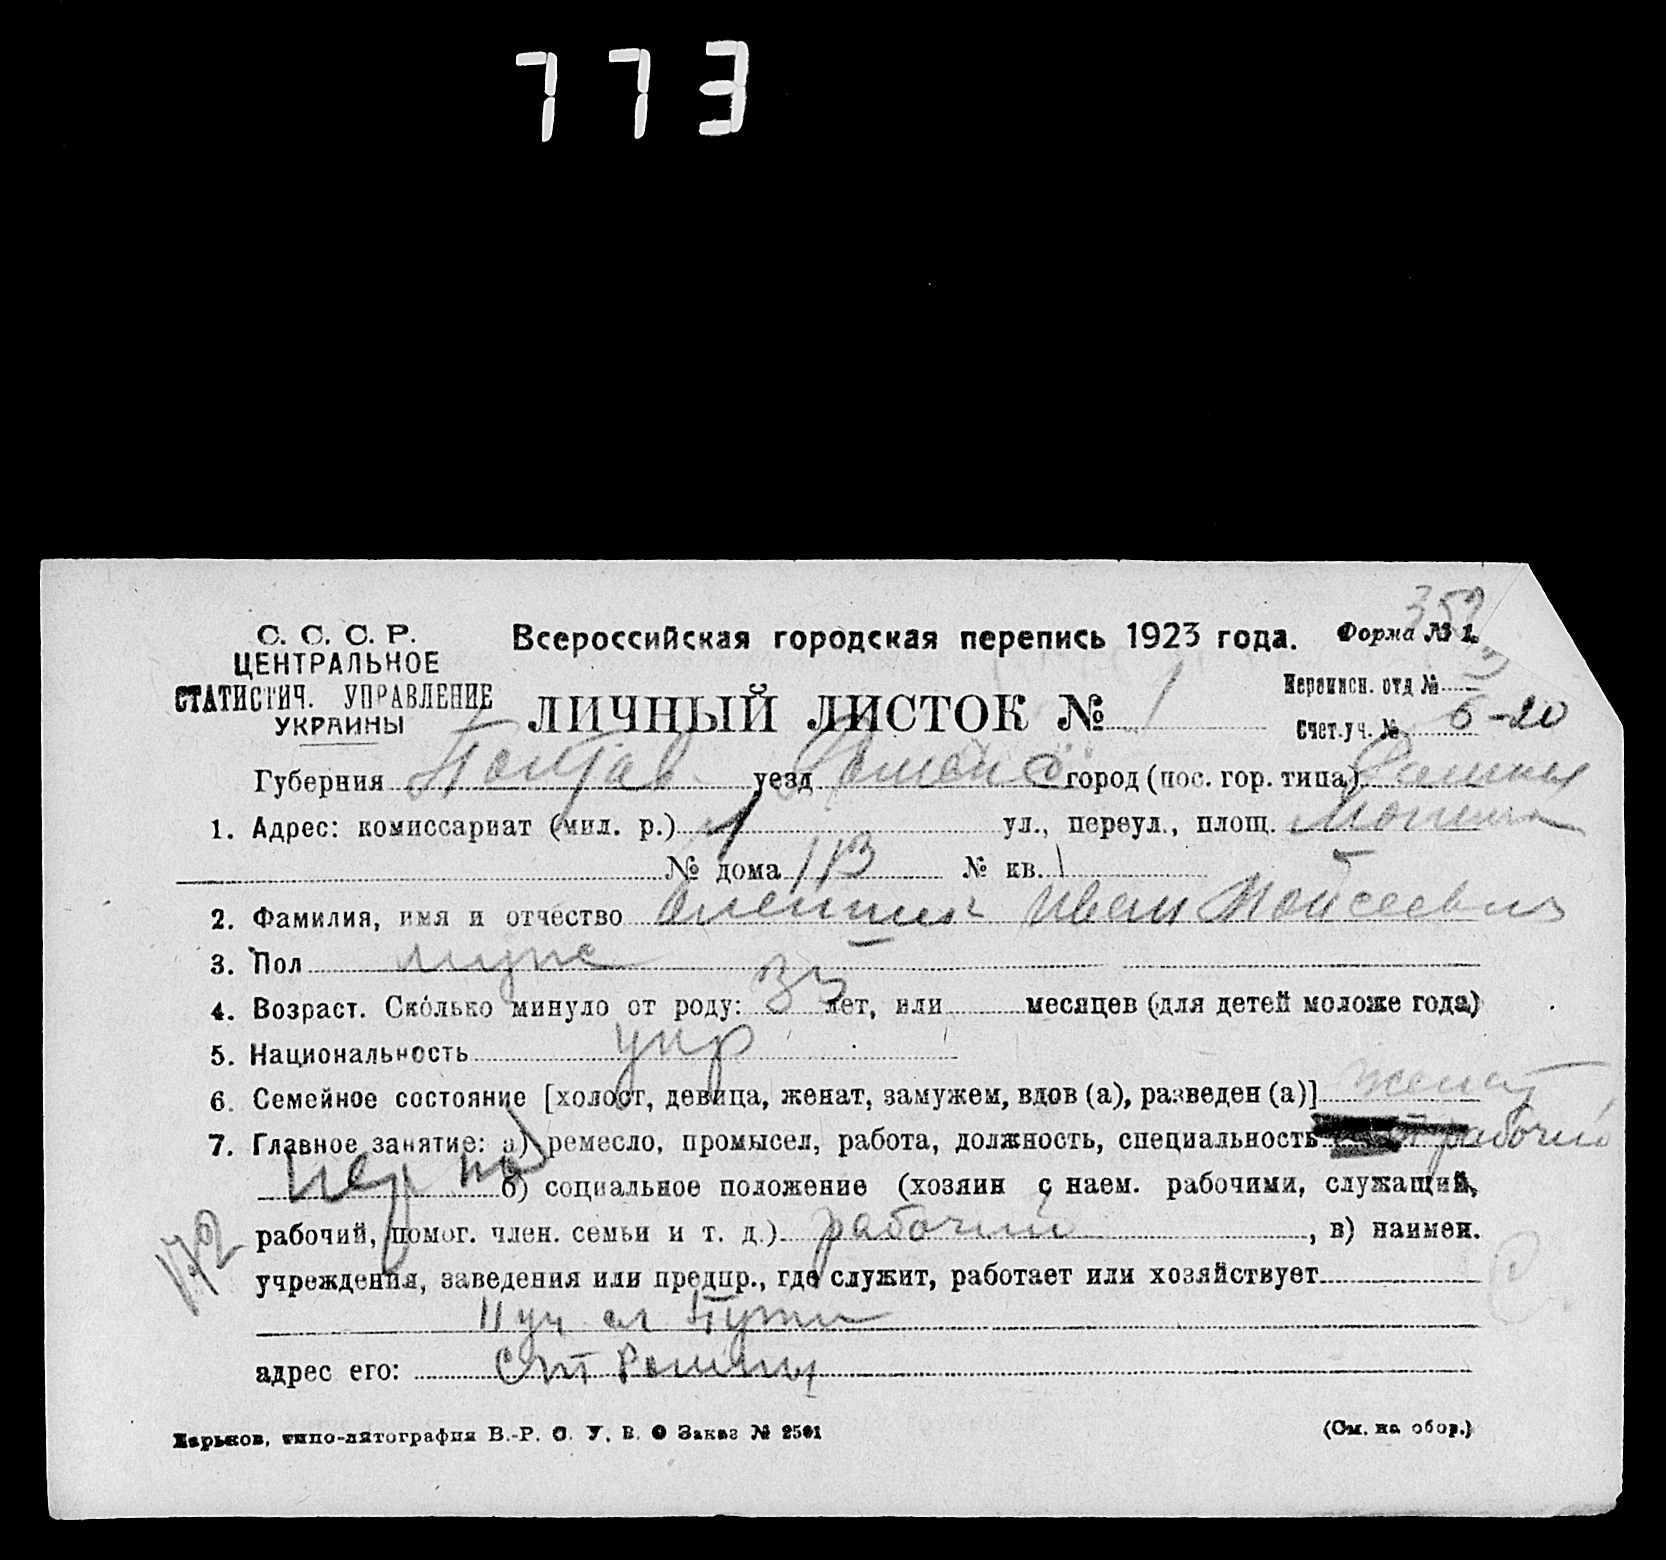 773
352
С. С. С. Р.
ЦЕНТРАЛЬНОЕ
СТАТИСТИЧ. УПРАВЛЕНИЕ
УКРАИНЫ
Всероссийская городская перепись 1923 года. Форма № 1.
ЛИЧНЫЙ ЛИСТОК № 1
Переписн. отд №
Счет.уч. № 6-20
Губерния Полтав. уезд Роменс город (пос. гор. типа) Ромны
1. Адрес: комиссариат (мил. р.) 1 ул., переул., площ.
№ дома 113 № кв. 1
2. Фамилия, имя и отчество Олейник Иван Мойсеевич
3. Пол мужс
4. Возраст. Сколько минуло от роду: 33 лет, или месяцев (для детей моложе года)
5. Национальность укр
6. Семейное состояние [холост, девица, женат, замужем, вдов (а), разведен (а)] женат
7. Главное занятие: а) ремесло, промысел, работа, должность, специальность рабочий
б) социальное положение (хозяин с наем. рабочими, служащий,
рабочий, помог. член. семьи и т. д.) рабочий, в) наимен.
учреждения, заведения или предпр., где служит, работает или хозяйствует
11 уч сл Пути
адрес его: ст Ромны
Харьков, типо-литография В.-Р. С. У. В. О Заказ № 2501 (См. на обор.)